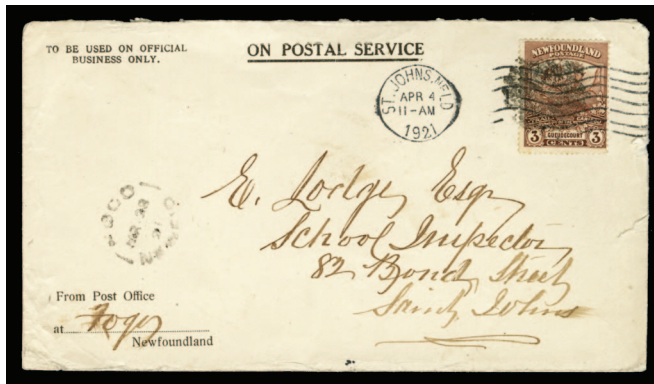 TO BE USED ON OFFICIAL
BUSINESS ONLY.
ON POSTAL SERVICE
ST. JOHNS, NFLD
APR 4
11-AM
1921
NEWFOUNDLAND
POSTAGE
3 3
CENTS
FOGO
NEWF'D
E. Lodge, Esq
School Inspector,
82 Bond Street
Saint Johns
From Post Office
at Fogo
Newfoundland